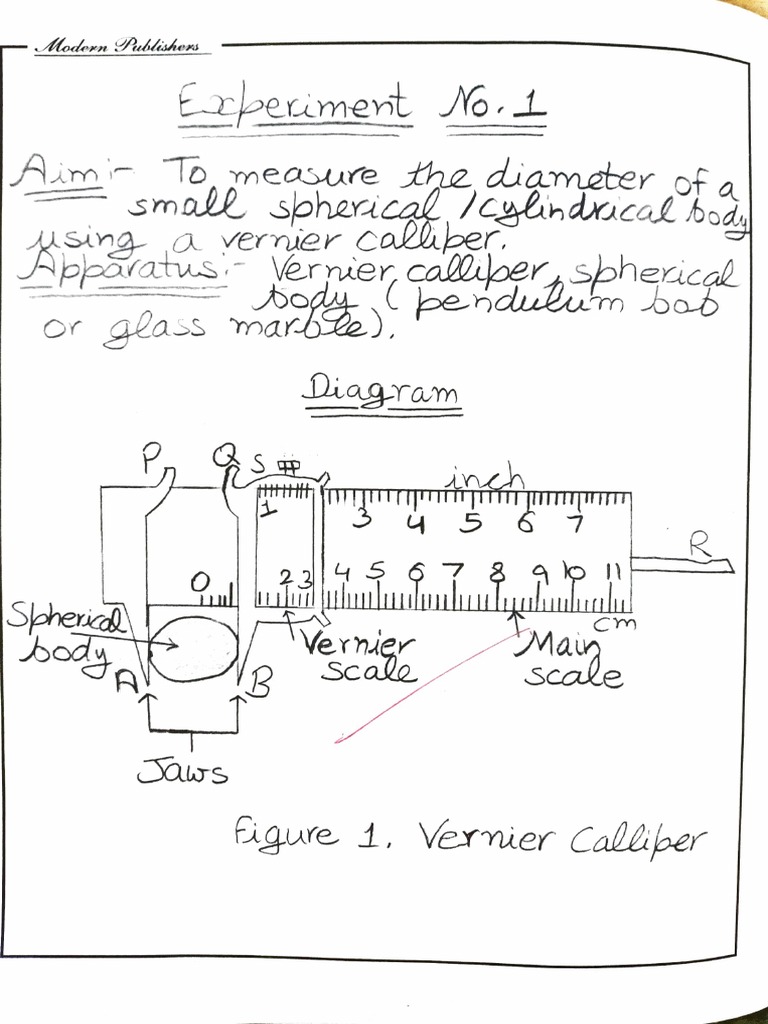 Modern Publishers
Experiment No. 1
Aim:- To measure the diameter of a
small spherical /cylindrical body
using a vernier calliper.
Apparatus:- Vernier calliper, spherical
body (pendulum bob
or glass marble).
Diagram
P Q S inch
1 3 4 5 6 7
R
0 2 3 4 5 6 7 8 9 10 11
cm
Spherical
body
Vernier
scale
Main
scale
A B
Jaws
Figure 1. Vernier Calliper